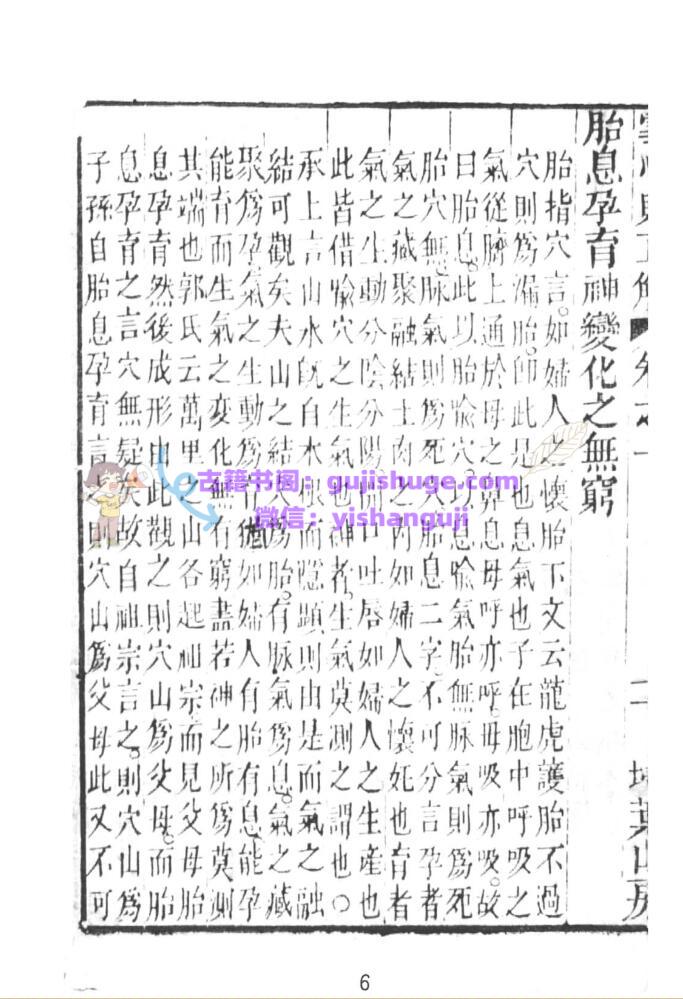 胎息孕育神變化之無窮
胎指穴言如婦人之懷胎下文云龍虎護胎不過
穴則爲漏胎即此是也息氣也子在胞中呼吸之
氣從臍上通於母之鼻息母呼亦呼母吸亦吸故
曰胎息此以胎喻穴以息喻氣胎無脉氣則爲死
胎穴無脉氣則爲死穴胎息二字不可分言孕者
氣之藏聚融結土肉之内如婦人之懷妊也育者
氣之生動分陰分陽開口吐唇如婦人之生產也
此皆借喻穴之生氣也神者生氣莫測之謂也○
承上言山水既自水脉而隱顯則由是而氣之融
結可觀矣夫山之結穴爲胎有脉氣爲息氣之藏
聚爲孕氣之生動爲育猶如婦人有胎有息能孕
能育而生氣之变化無有窮盡若神之所爲莫測
其端也郭氏云萬里之山各起祖宗而見父母胎
息孕育然後成形由此觀之則穴山爲父母而胎
息孕育之言穴無疑矣故自祖宗言之則穴山爲
子孫自胎息孕育言之則穴山爲父母此又不可
二
古籍书阁：gujishuge.com
微信：yishanguji
6